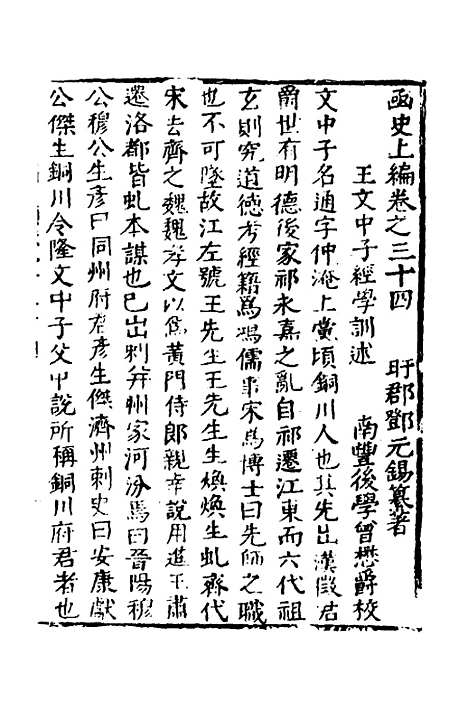 函史上編卷之三十四 盱郡鄧元錫纂著
王文中子經學訓述 南豐後學曾懋爵校
文中子名通字仲淹上黨頃銅川人也其先出漢徵君
爵世有明德後家祁永嘉之亂自祁遷江東而六代祖
玄則究道德考經籍爲鴻儒事宋爲博士曰先師之職
也不可墜故江左號王先生王先生生煥煥生虬齊代
宋去齊之魏魏孝文以爲黃門侍郎親幸說用進王肅
遷洛都皆虬本謀也已出刺并州家河汾焉曰晉陽穆
公穆公生彥曰同州府君彥生傑濟州刺史曰安康獻
公傑生銅川令隆文中子父中說所稱銅川府君者也